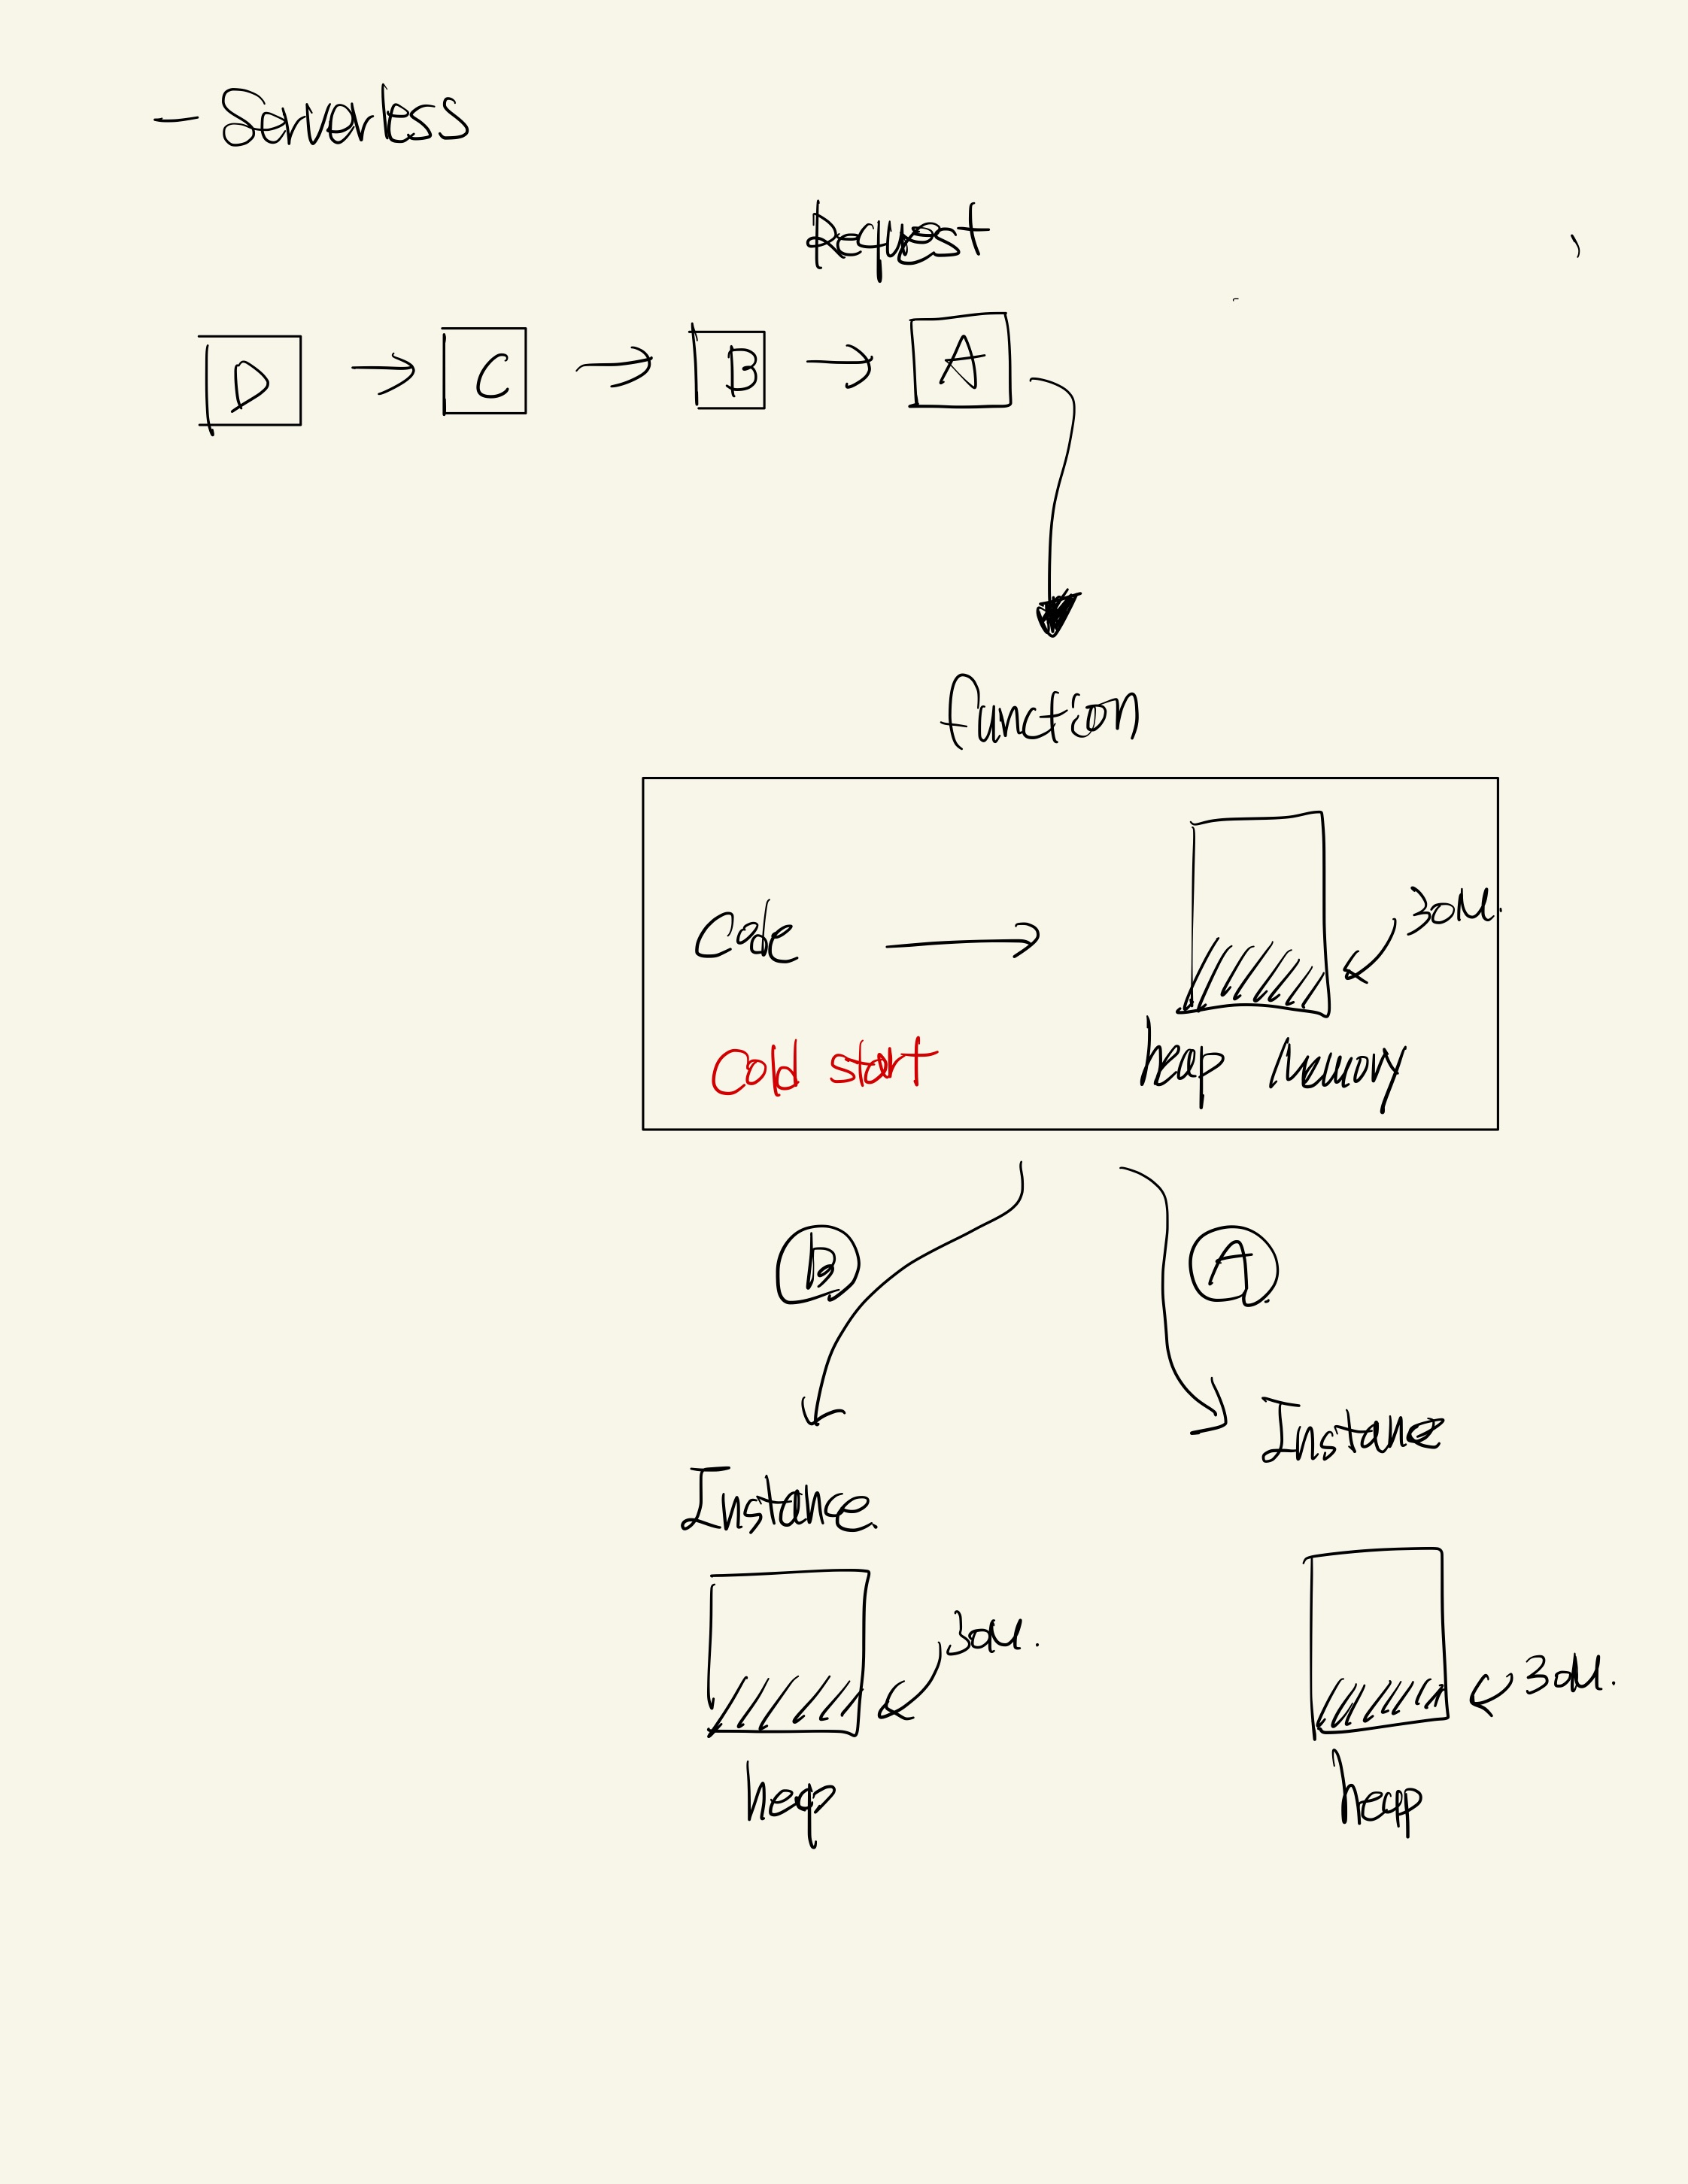 - Serverless
Request
D → C → B → A
function
Code →
30M.
Cold start
heap Memory
B
A
Instance
Instance
30M.
30M.
heap
heap